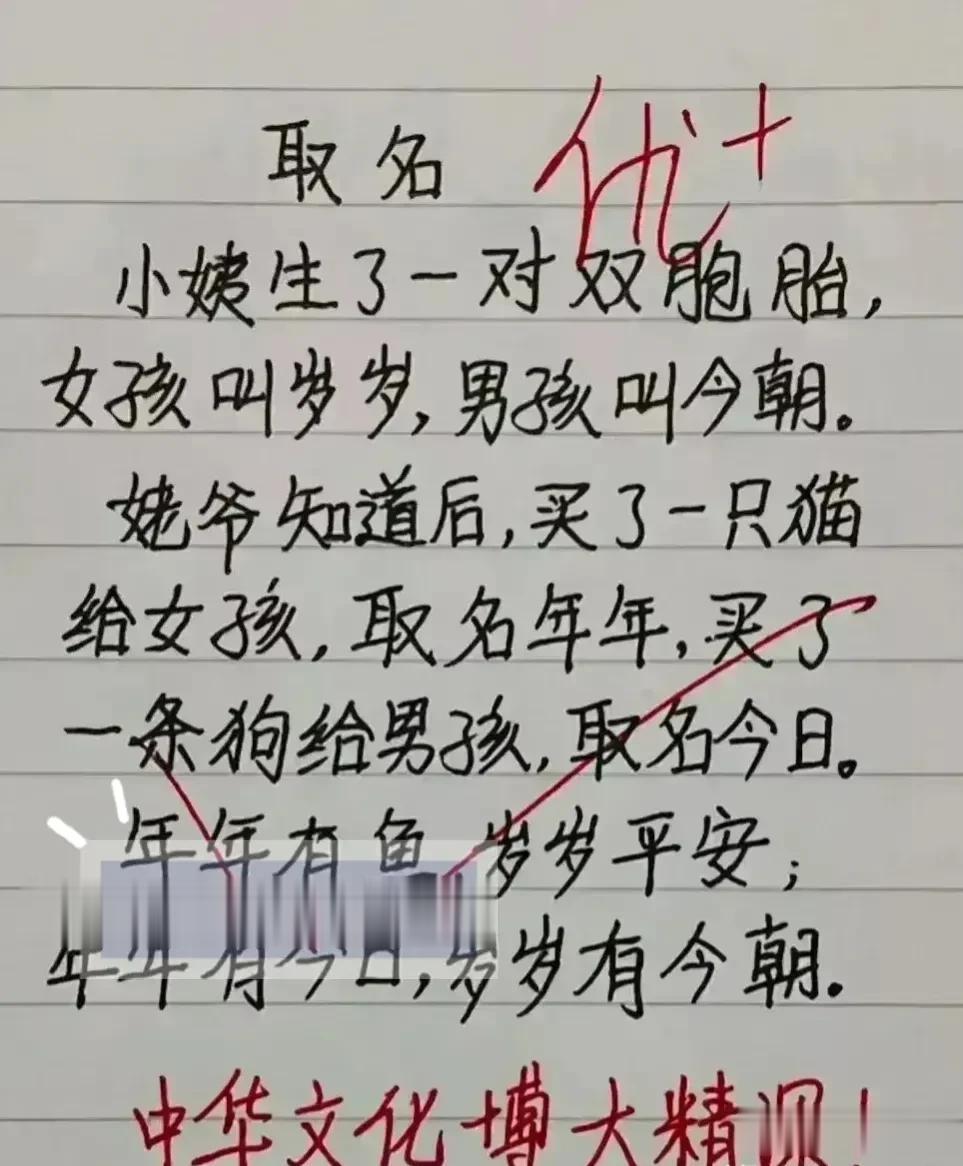 取名
优+
小姨生了一对双胞胎,
女孩叫岁岁,男孩叫今朝。
姥爷知道后,买了一只猫
给女孩,取名年年,买了
一条狗给男孩,取名今日。
年年有鱼 岁岁平安;
年年有今日,岁岁有今朝。
中华文化博大精深!